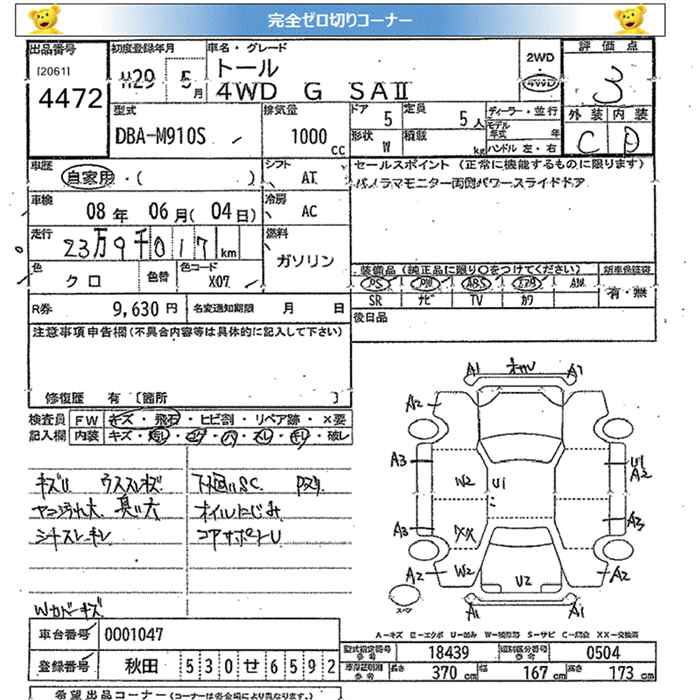 完全ゼロ切りコーナー
出品番号
[2061]
4472
初度登録年月
H29 5月
車名・グレード
トール
4WD G SAⅡ
2WD
・
4WD
評価点
3
外装 内装
C D
型式
DBA-M910S
排気量
1000 cc
ドア 5
定員 5人
形状 W
積載 kg
ディーラー・並行
モデル年式 年
ハンドル 左・右
車歴
自家用・( )
シフト AT
セールスポイント (正常に機能するものに限ります)
パノラマモニター両側パワースライドドア
車検
08年 06月(04日)
冷房 AC
走行
23万9千017km
燃料
ガソリン
色
クロ
色替
色コード
X07
装備品(純正品に限り○をつけてください)
PS PW ABS エアB AW
SR ナビ TV カワ
新車保証書
有・無
R券 9,630円
名変通知期限 月 日
後日品
注意事項申告欄(不具合内容等は具体的に記入して下さい)
修復歴 有〔箇所 〕
検査員記入欄
FW キズ・飛石・ヒビ割・リペア跡・×要
内装 キズ・汚レ・コゲ・穴・スレ・キレ・破レ
キズU ウススレキズ
ヤニ汚れ大 臭い大
シートスレ・キレ
下廻りSC
オイルにじみ
コアサポートU
Wカバーキズ
A1 A1
A2 A2
A3 W2 U1 U1 A2
A3 A3
A2 W2 U2 A2
A1 A1
スペア
A-キズ E-エクボ U-凹み W-補修跡 S-サビ C-腐食 XX-交換済
車台番号 0001047
登録番号 秋田 530 せ 6592
型式指定番号 18439
類別区分番号 0504
長さ 370 cm 幅 167 cm 高さ 173 cm
希望出品コーナー(コーナーは各会場により異なります。)